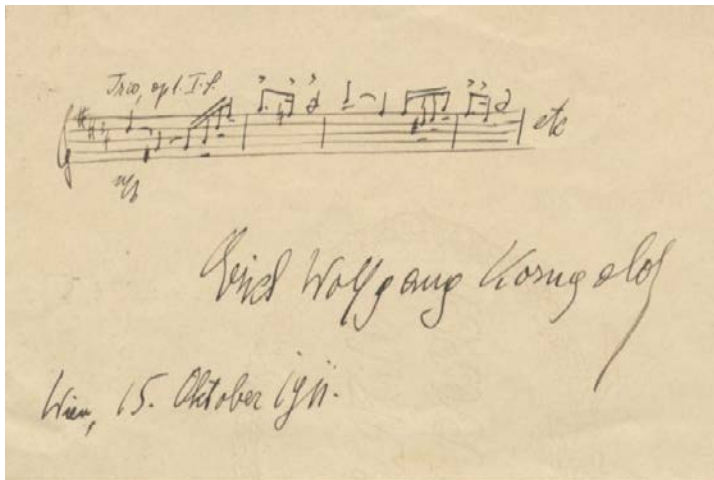 Trio, op 1. I. S.
mf
etc
Erich Wolfgang Korngold
Wien, 15. Oktober 1911.